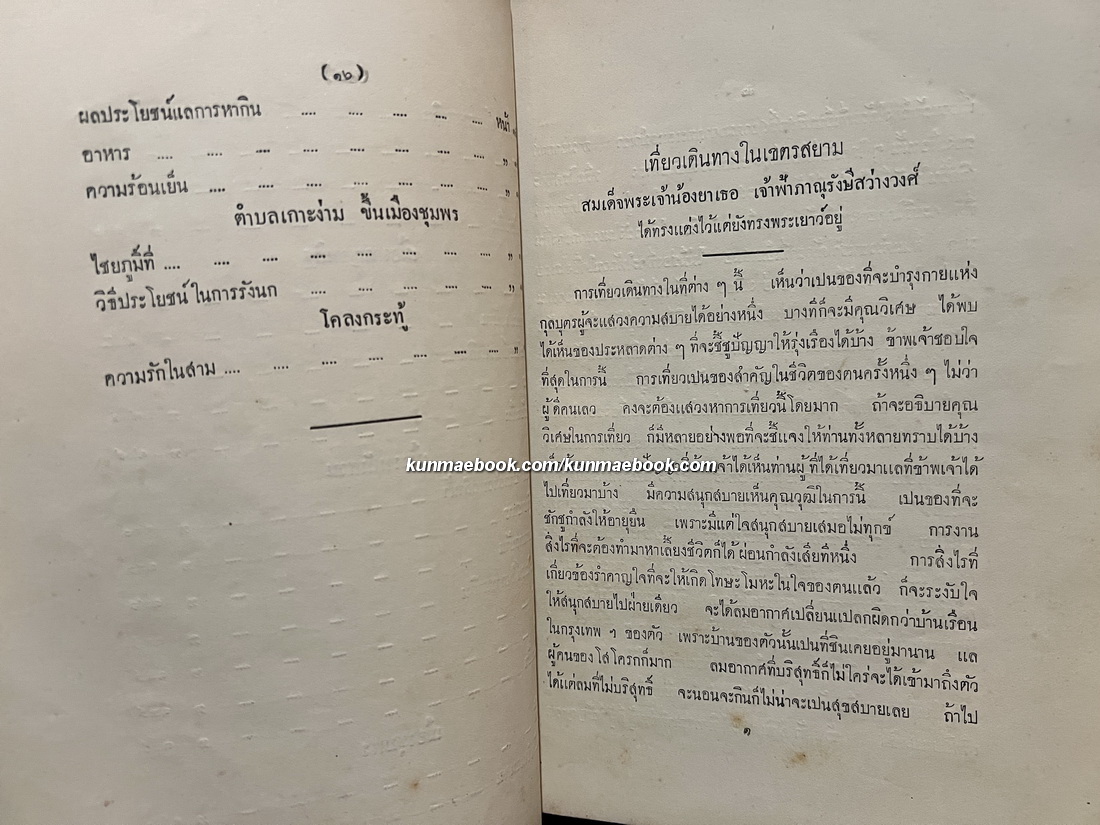 (๑๒)
ผลประโยชน์แลการหากิน .... .... .... .... .... หน้า
อาหาร .... .... .... .... .... .... .... ,,
ความร้อนเย็น .... .... .... .... .... .... ,,
ตำบลเกาะง่าม ขึ้นเมืองชุมพร
ไชยภูมิ์ที่ .... .... .... .... .... .... .... ,,
วิธีประโยชน์ในการรังนก .... .... .... .... .... ,,
โคลงกระทู้
ความรักในสาม .... .... .... .... .... .... ,,
เที่ยวเดินทางในเขตรสยาม
สมเด็จพระเจ้าน้องยาเธอ เจ้าฟ้าภาณุรังษีสว่างวงศ์
ได้ทรงแต่งไว้แต่ยังทรงพระเยาว์อยู่
การเที่ยวเดินทางในที่ต่าง ๆ นี้ เห็นว่าเปนของที่จะบำรุงกายแห่ง
กุลบุตรผู้จะแสวงความสบายได้อย่างหนึ่ง บางทีก็จะมีคุณวิเศษ ได้พบ
ได้เห็นของประหลาดต่าง ๆ ที่จะชี้ชูปัญญาให้รุ่งเรืองได้บ้าง ข้าพเจ้าชอบใจ
ที่สุดในการนี้ การเที่ยวเปนของสำคัญในชีวิตของตนครั้งหนึ่ง ๆ ไม่ว่า
ผู้ดีคนเลว คงจะต้องแสวงหาการเที่ยวนี้โดยมาก ถ้าจะอธิบายคุณ
วิเศษในการเที่ยว ก็มีหลายอย่างพอที่จะชี้แจงให้ท่านทั้งหลายทราบได้บ้าง
kunmaebook.com/kunmaebook.com
ได้เห็นท่านผู้ที่ได้เที่ยวมาแลที่ข้าพเจ้าได้
ไปเที่ยวมาบ้าง มีความสนุกสบายเห็นคุณวุฒิในการนี้ เปนของที่จะ
ชักชูกำลังให้อายุยืน เพราะมีแต่ใจสนุกสบายเสมอไม่ทุกข์ การงาน
สิ่งไรที่จะต้องทำมาหาเลี้ยงชีวิตก็ได้ผ่อนกำลังเสียทีหนึ่ง การสิ่งไรที่
เกี่ยวข้องรำคาญใจที่จะให้เกิดโทษะโมหะในใจของตนแล้ว ก็จะระงับใจ
ให้สนุกสบายไปฝ่ายเดียว จะได้ลมอากาศเปลี่ยนแปลกผิดกว่าบ้านเรือน
ในกรุงเทพ ฯ ของตัว เพราะบ้านของตัวนั้นเปนที่ชินเคยอยู่มานาน แล
ผู้คนของโสโครกก็มาก ลมอากาศที่บริสุทธิ์ก็ไม่ใคร่จะได้เข้ามาถึงตัว
ได้แต่ลมที่ไม่บริสุทธิ์ จะนอนจะกินก็ไม่น่าจะเปนสุขสบายเลย ถ้าไป
๑